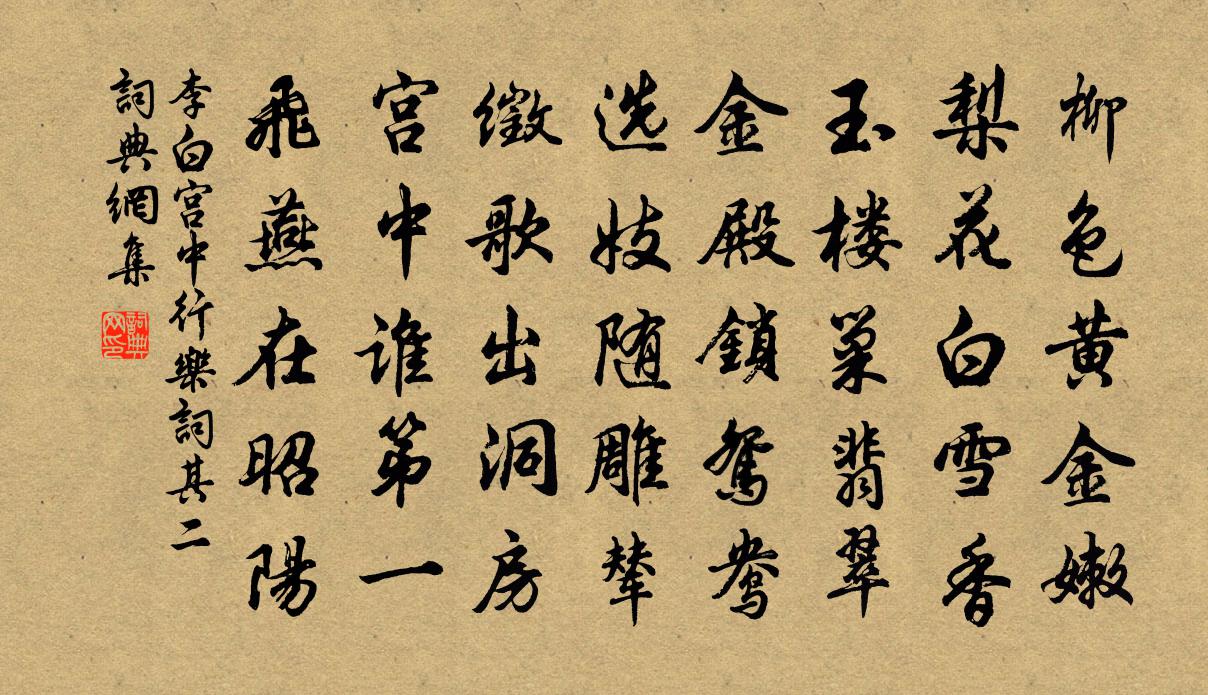 柳色黄金嫩
梨花白雪香
玉楼巢翡翠
金殿鎖鴛鴦
选妓随雕輦
徵歌出洞房
宫中谁第一
飛燕在昭陽
李白宫中行樂詞其二
詞典網集
詞典网印